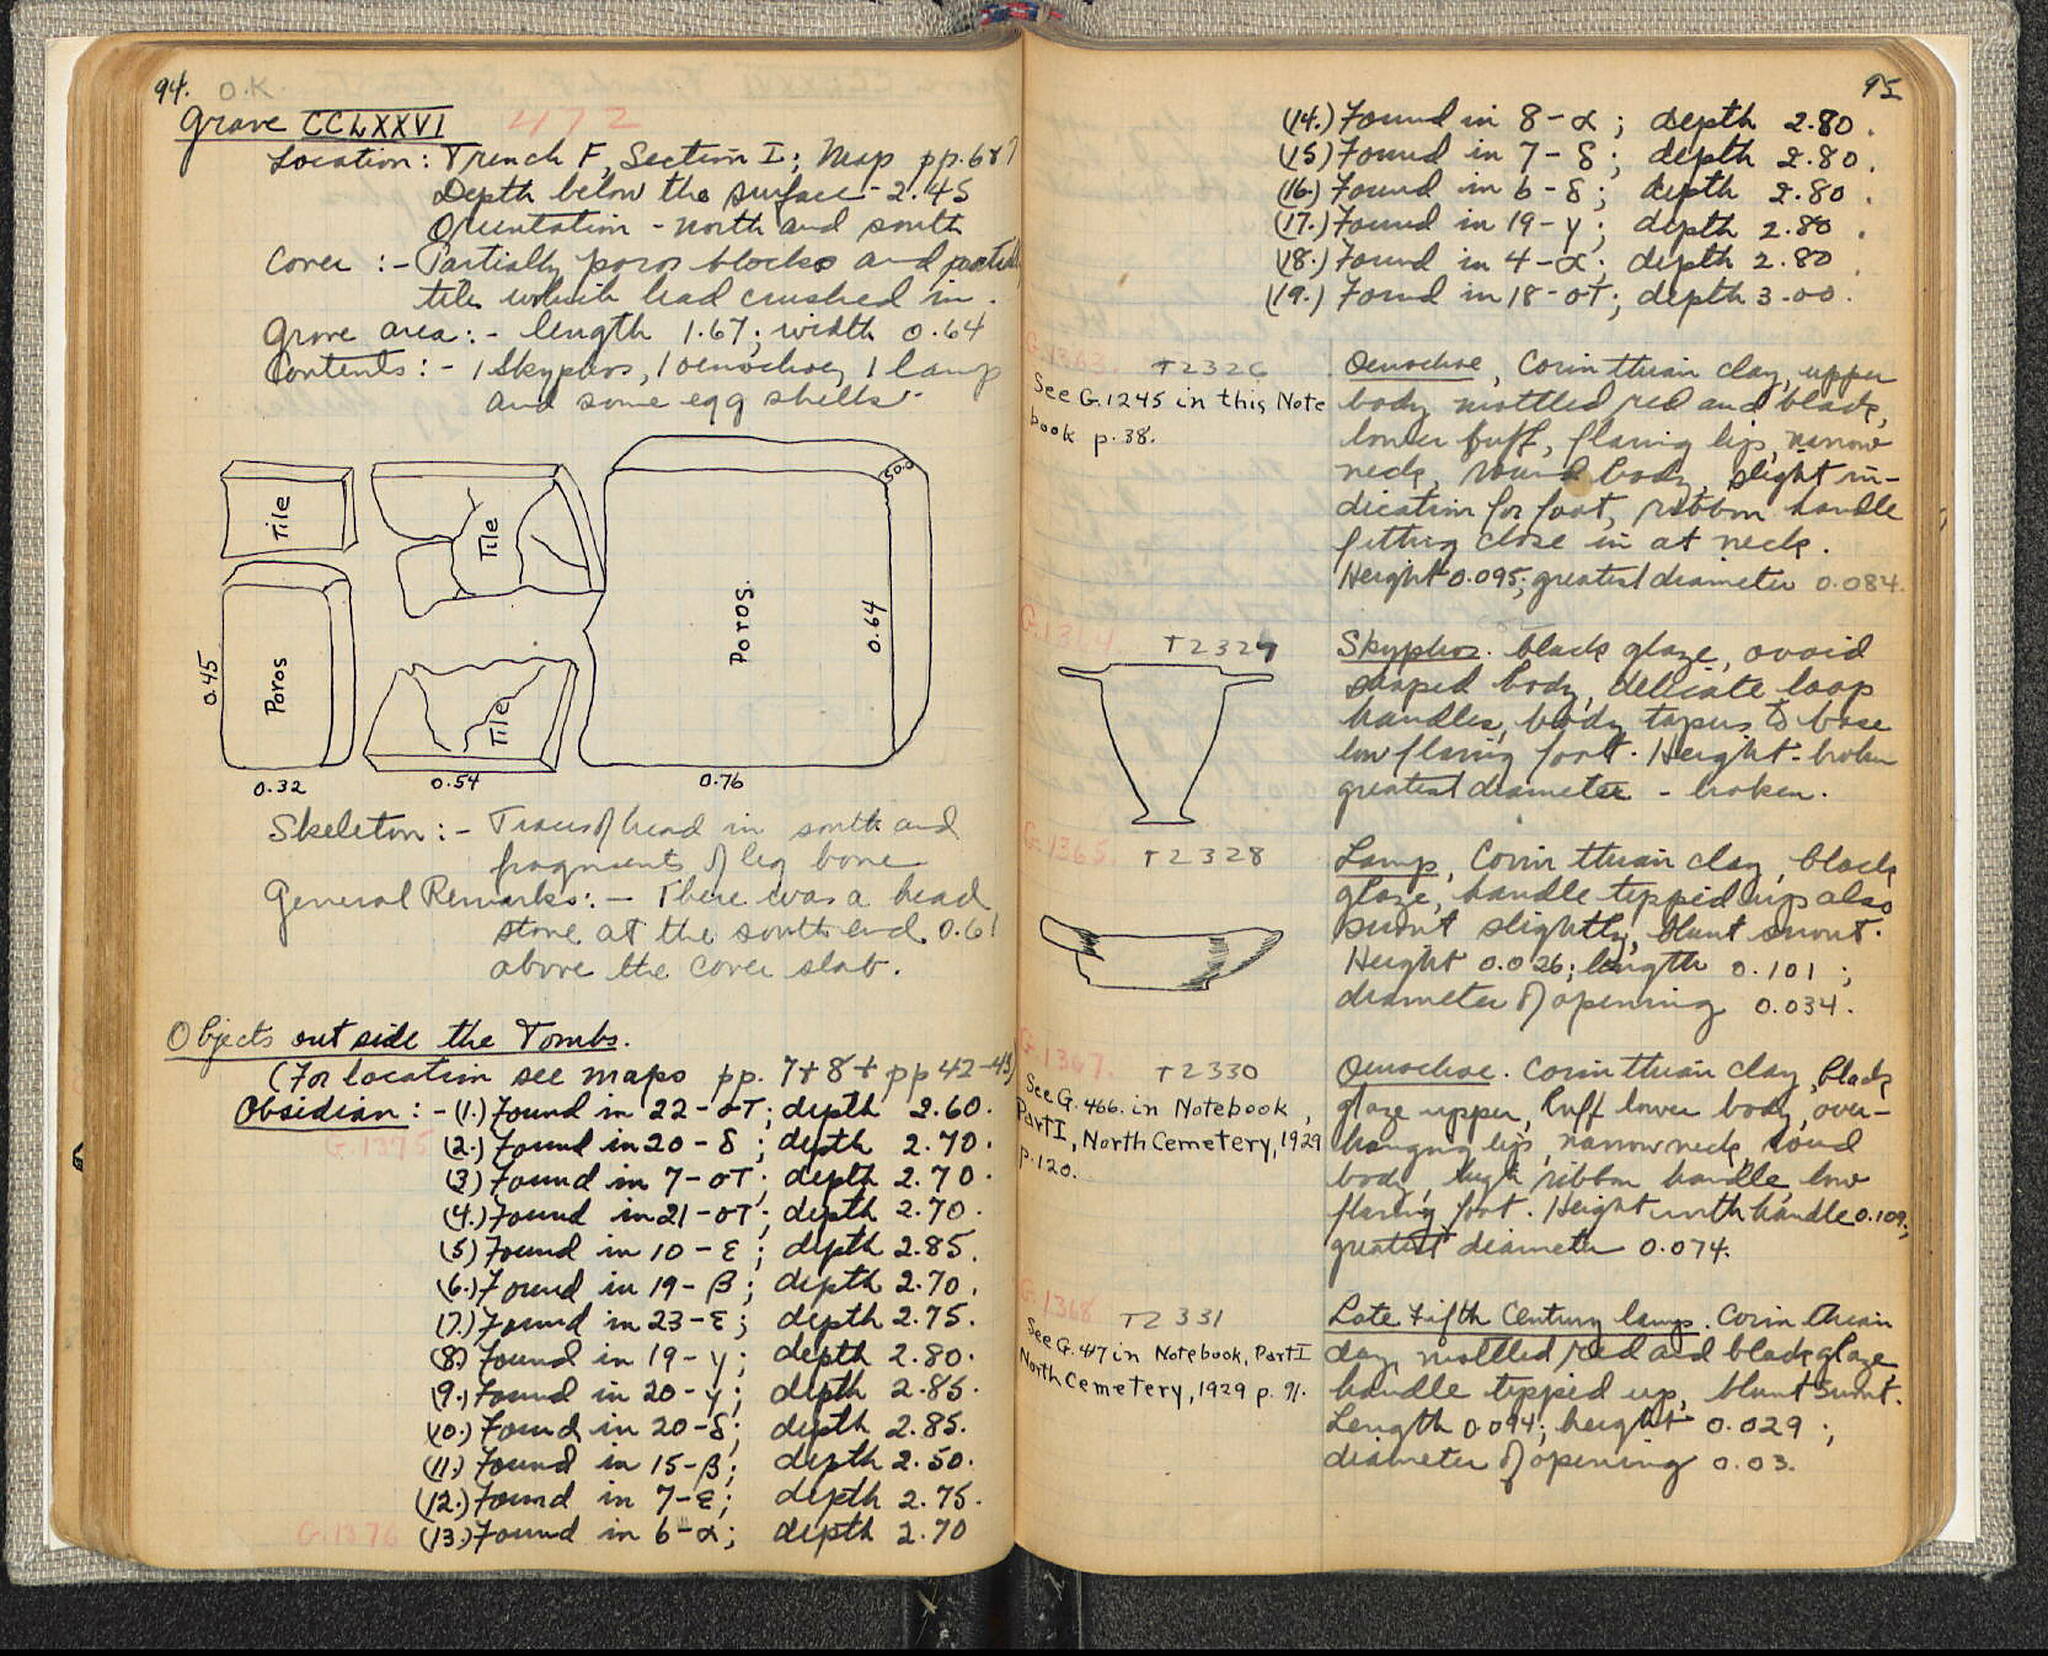 94. O.K.
Grave CCLXXVI 472
Location: Trench F, Section I; Map pp. 6+7
Depth below the surface - 2.45
Orientation - north and south
Cover :- Partially poros blocks and partially
tile which had crushed in.
Grave area :- length 1.67; width 0.64
Contents :- 1 Skyphos, 1 oenochoe, 1 lamp
and some egg shells.
Tile
Tile
Poros
Poros.
Tile
0.45
0.64
0.32
0.54
0.76
Skeleton :- Traces of head in south and
fragments of leg bone
General Remarks :- There was a head
stone at the south end 0.61
above the cover slab.
Objects outside the Tombs.
(For location see maps pp. 7+8+ pp 42-43)
Obsidian :- (1.) Found in 22-στ; depth 2.60.
G.1375 (2.) Found in 20-δ; depth 2.70.
(3) Found in 7-στ; depth 2.70.
(4.) Found in 21-στ; depth 2.70.
(5) Found in 10-ε; depth 2.85.
(6.) Found in 19-β; depth 2.70.
(7.) Found in 23-ε; depth 2.75.
(8) Found in 19-γ; depth 2.80.
(9.) Found in 20-γ; depth 2.85.
(10.) Found in 20-δ; depth 2.85.
(11.) Found in 15-β; depth 2.50.
(12.) Found in 7-ε; depth 2.75.
G.1376 (13.) Found in 6-α; depth 2.70
95
(14.) Found in 8-α; depth 2.80.
(15) Found in 7-δ; depth 2.80.
(16.) Found in 6-δ; depth 2.80.
(17.) Found in 19-γ; depth 2.80.
(18.) Found in 4-α; depth 2.80.
(19.) Found in 18-στ; depth 3.00.
G.1363. T2326
See G.1245 in this Note
book p. 38.
Oenochoe, Corinthian clay, upper
body mottled red and black,
lower buff, flaring lip, narrow
neck, round body, slight in-
dication for foot, ribbon handle
fitting close in at neck.
Height 0.095; greatest diameter 0.084.
G.1364 T2327
Skyphos. black glaze, ovoid
shaped body, delicate loop
handles, body tapers to base
low flaring foot. Height - broken
greatest diameter - broken.
G.1365 T2328
Lamp, Corinthian clay, black
glaze, handle tipped up also
snout slightly, blunt snout.
Height 0.026; length 0.101;
diameter of opening 0.034.
G.1367. T2330
See G.466. in Notebook,
Part I, North Cemetery, 1929
p.120.
Oenochoe. Corinthian clay, black
glaze upper, buff lower body, over-
hanging lip, narrow neck, round
body, high ribbon handle, low
flaring foot. Height with handle 0.109;
greatest diameter 0.074.
G.1368 T2331
See G.417 in Notebook, Part I
North Cemetery, 1929 p. 91.
Late Fifth Century lamp. Corinthian
clay, mottled red and black glaze,
handle tipped up, blunt snout.
Length 0.094; height 0.029;
diameter of opening 0.03.